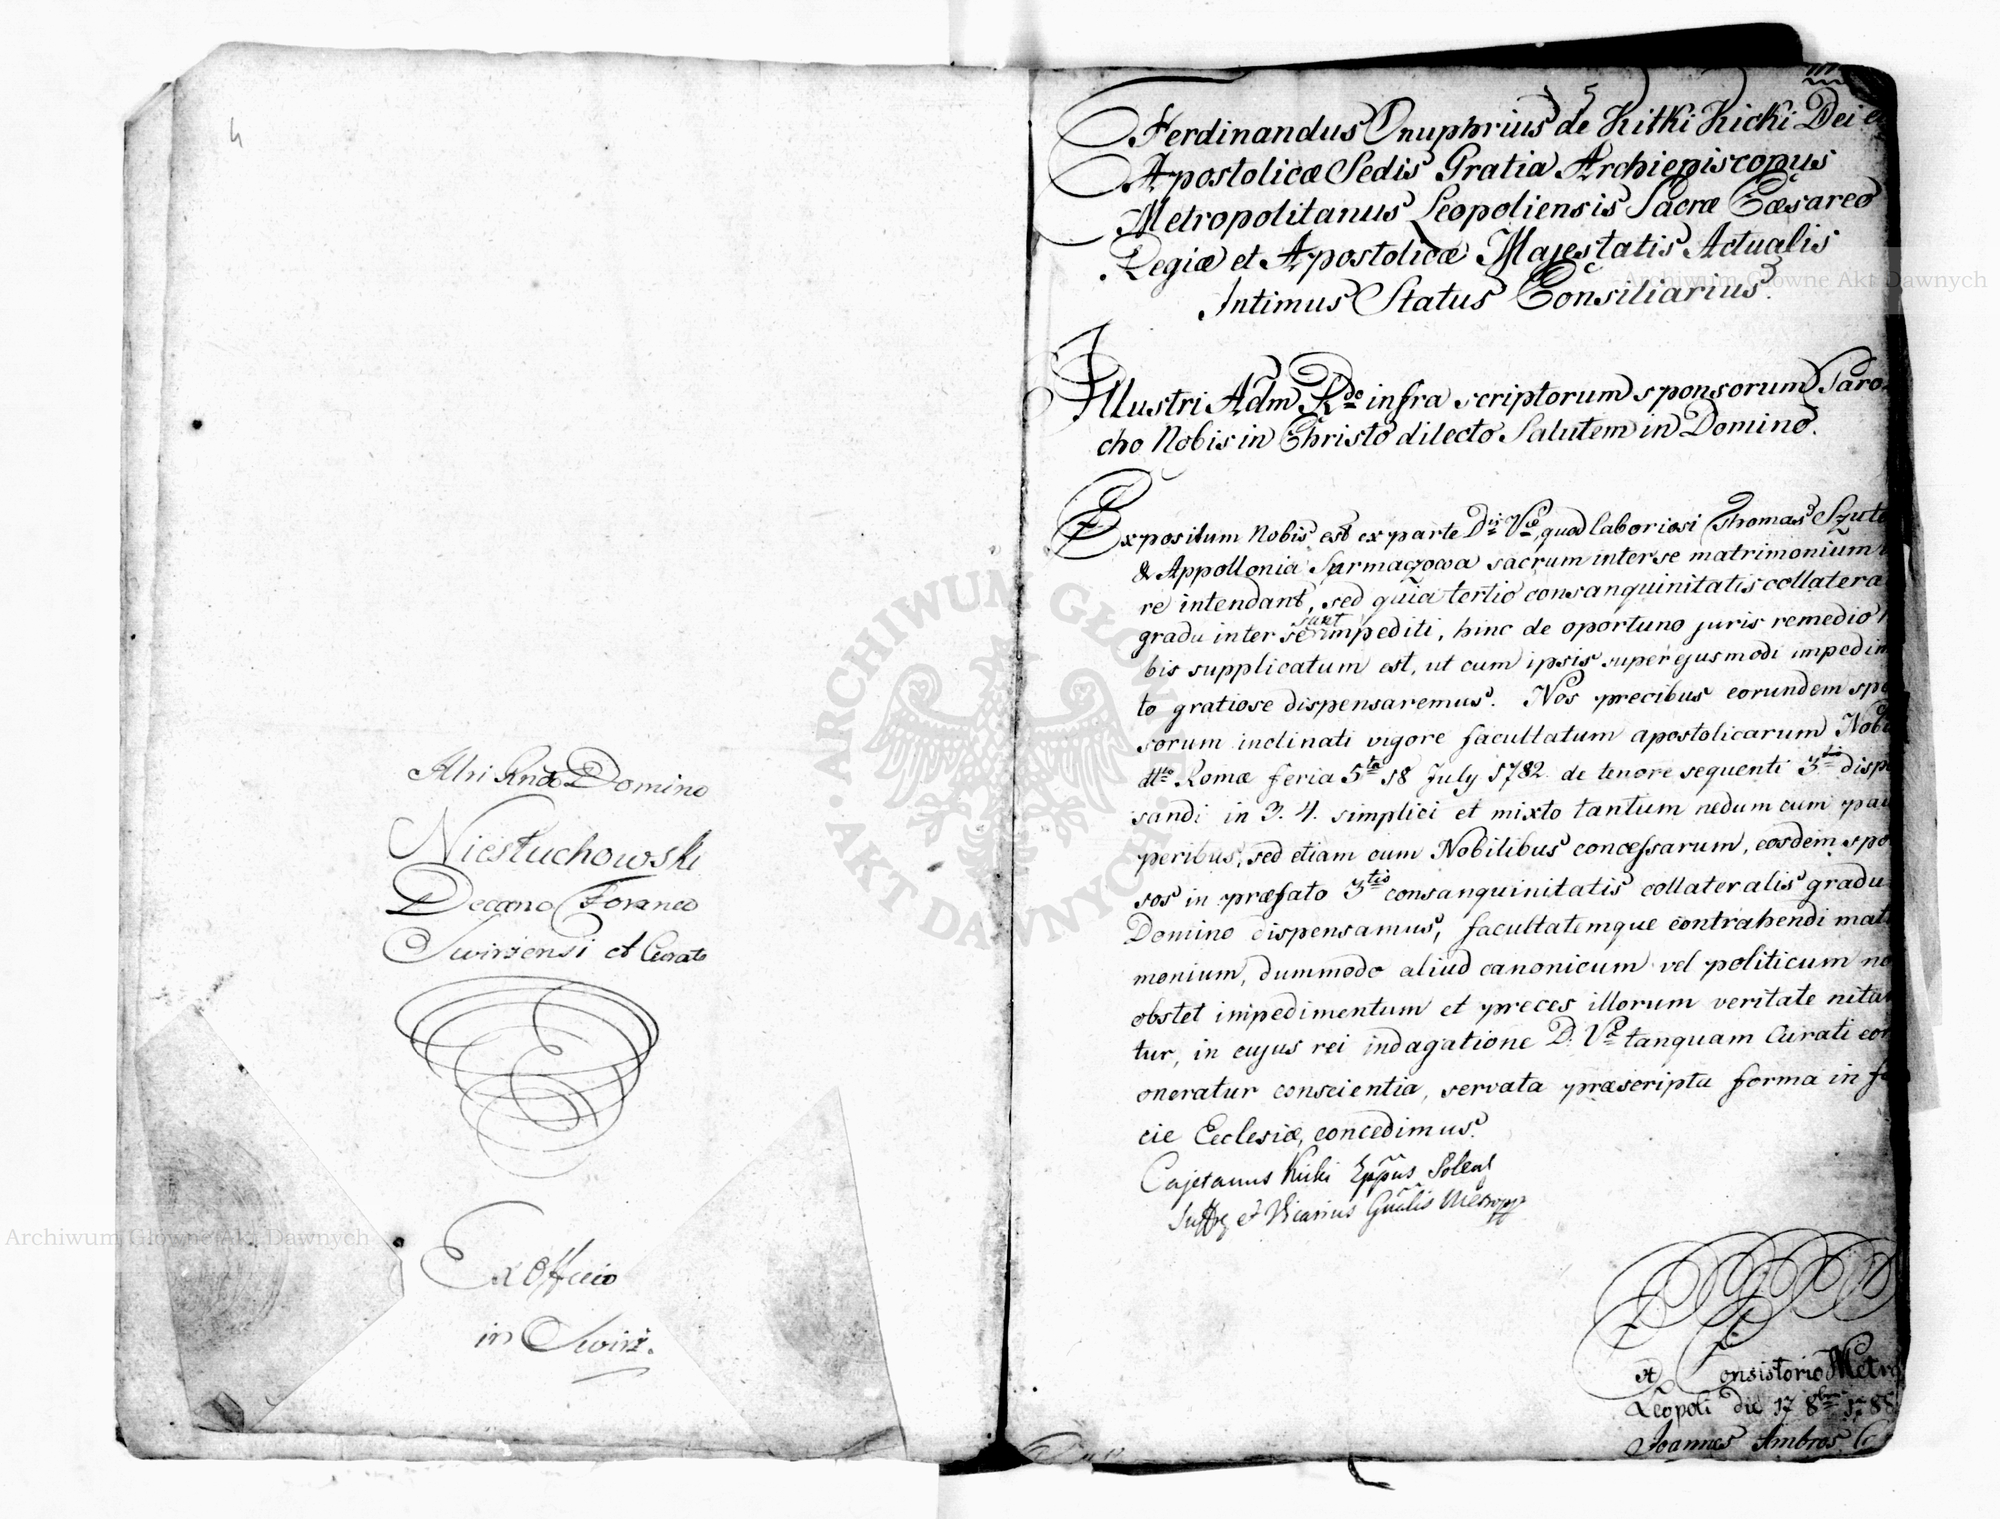 4
Adm Rndo Domino
Niesłuchowski
Decano Foraneo
Swirzensi et Curato
Ex Officio
in Swirz.
5
Ferdinandus Onuphrius de Kitki Kicki Dei et
Apostolicæ Sedis Gratia Archiepiscopus
Metropolitanus Leopoliensis Sacræ Cæsareo
Regiæ et Apostolicæ Majestatis Actualis
Intimus Status Consiliarius.
Illustri Adm Rdo infra scriptorum sponsorum Paro
cho Nobis in Christo dilecto Salutem in Domino.
Expositum Nobis est ex parte Dnis Vræ, quod laboriosi Thomas Szute
& Appollonia Surmaczowa sacrum inter se matrimonium
re intendant, sed quia tertio consanquinitatis collatera
gradu inter se sunt impediti, hinc de oportuno juris remedio
bis supplicatum est, ut cum ipsis super ejusmodi impedim
to gratiose dispensaremus. Nos precibus eorundem spo
sorum inclinati vigore facultatum apostolicarum Nobis
dtto Romæ feria 5ta 18 July 1782 de tenore sequenti 3tio dispe
sandi in 3. 4. simplici et mixto tantum nedum cum pau
peribus, sed etiam cum Nobilibus concessarum, eosdem spo
sos in præfato 3tio consanquinitatis collateralis gradu
Domino dispensamus, facultatemque contrahendi matri
monium, dummodo aliud canonicum vel politicum no
obstet impedimentum et preces illorum veritate nitan
tur, in cujus rei indagatione D. Vræ tanquam Curati
oneratur conscientia, servata præscripta forma in fa
cie Ecclesiæ, concedimus.
Cajetanus Kicki Eppus Solens
Suffrg et Vicarius Gnalis Metropp
Consistorio Metro
Leopoli die 17 8bris 1788
Joannes Ambros
ARCHIWUM GŁÓWNE
AKT DAWNYCH
Archiwum Główne Akt Dawnych
Archiwum Główne Akt Dawnych